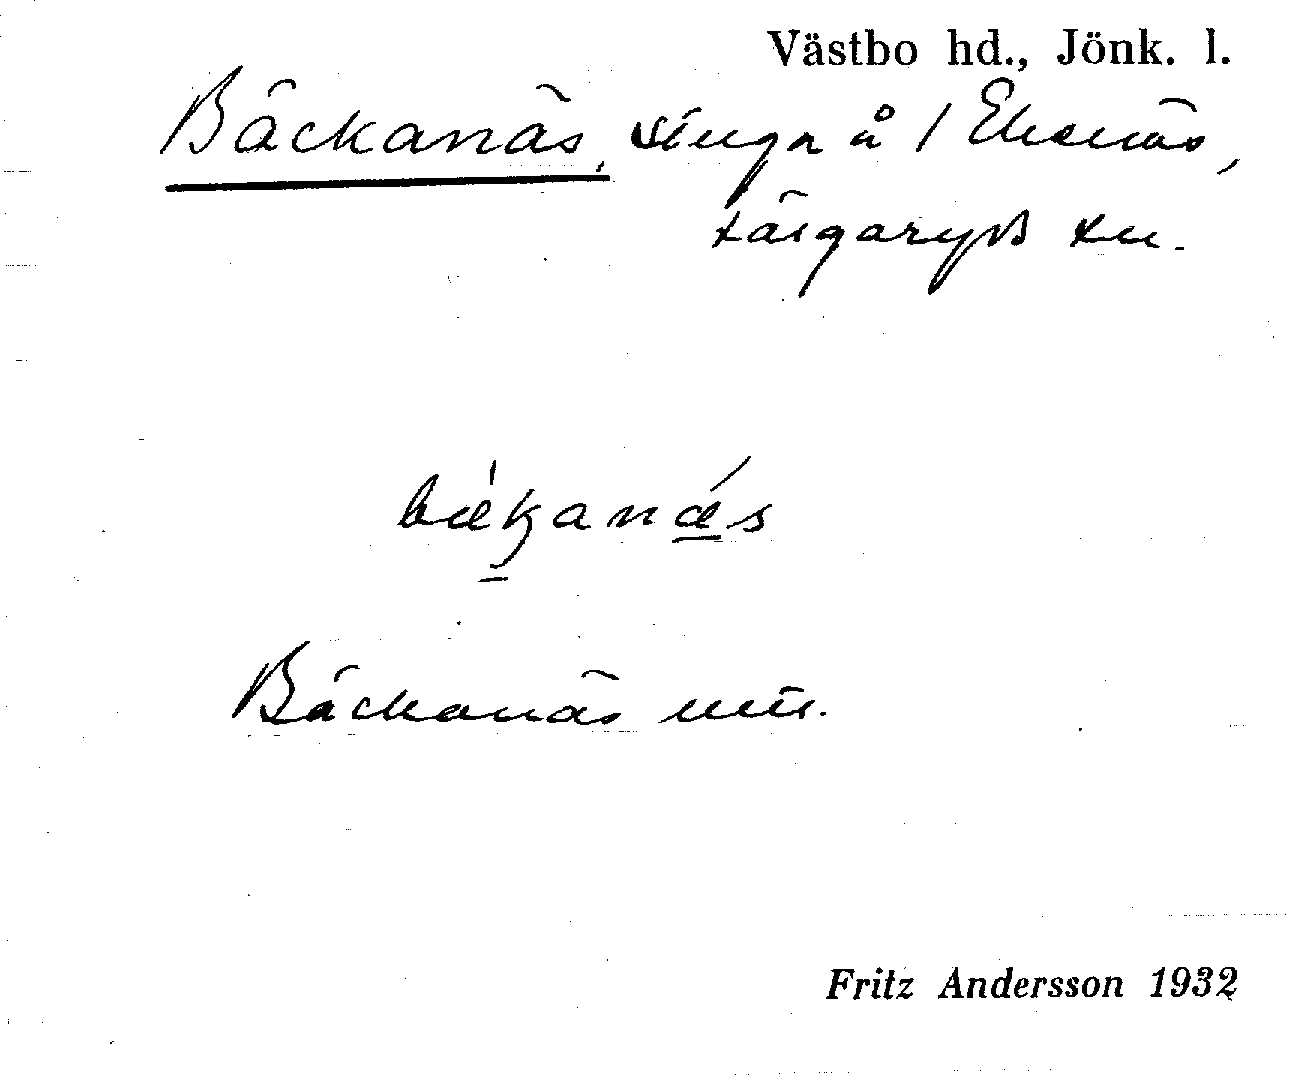 Västbo hd., Jönk. l.
Bäckanäs, stuga å 1 Ekenäs,
Färgaryds sn.
bækanæs
Bäckanäs mtr.
Fritz Andersson 1932